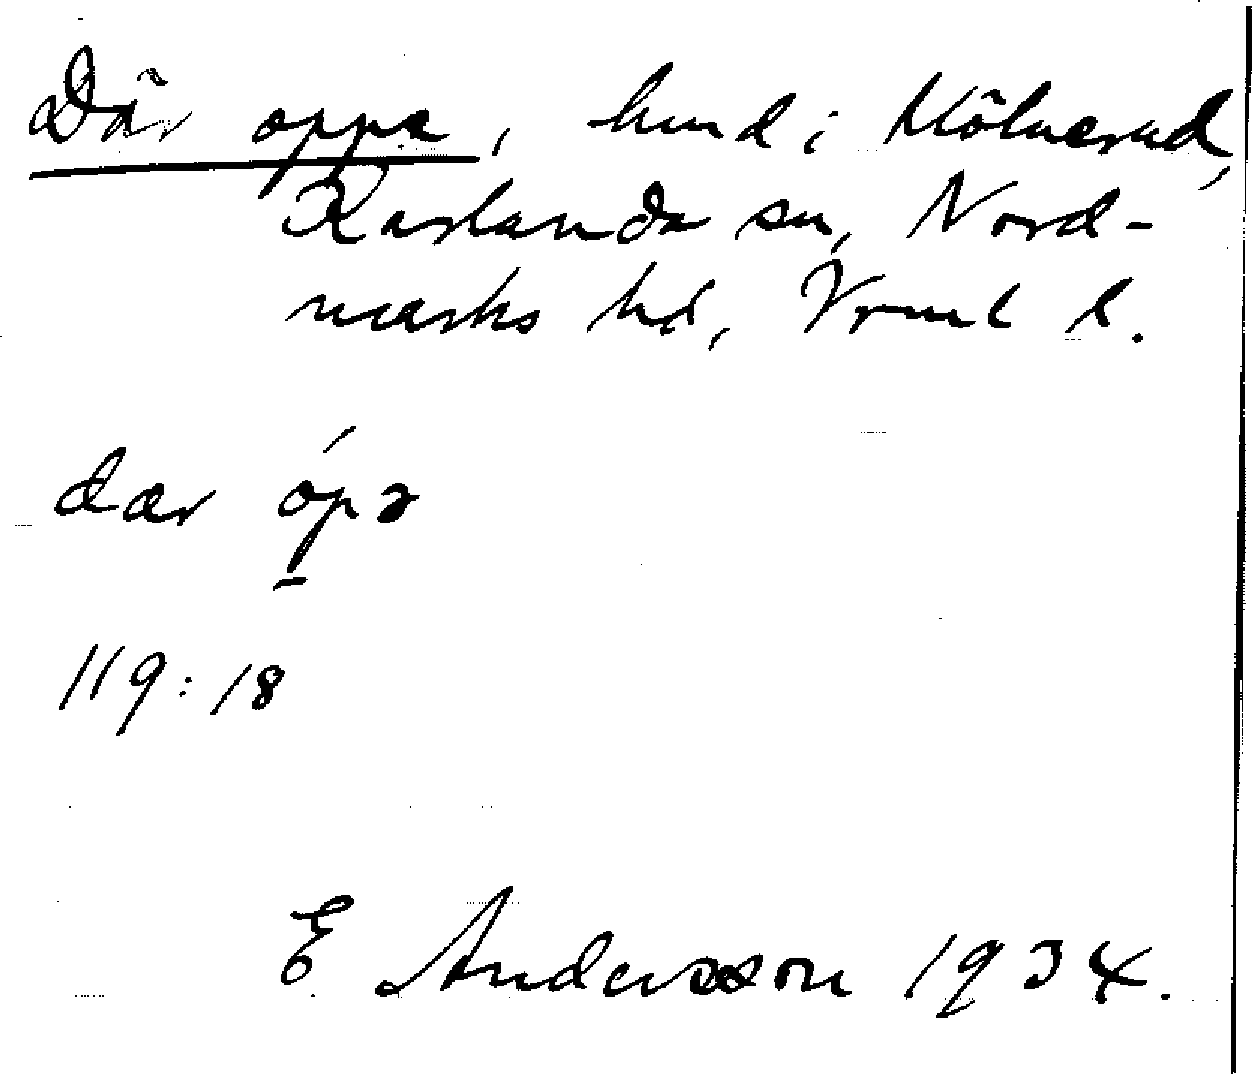 Där oppe, hmd i Mölnerud,
Karlanda sn, Nord-
marks hd, Vrml l.
dær ópə
119:18
E Andersson 1934.